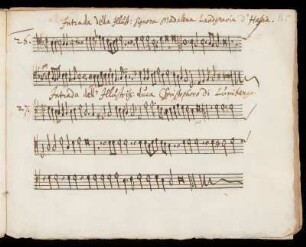 Intrada della Illust: signora Madalena Landgravia d'Hassia.
26.
Intrada dell' Illustriss: duca Christophoro di Lüneburgo
27.